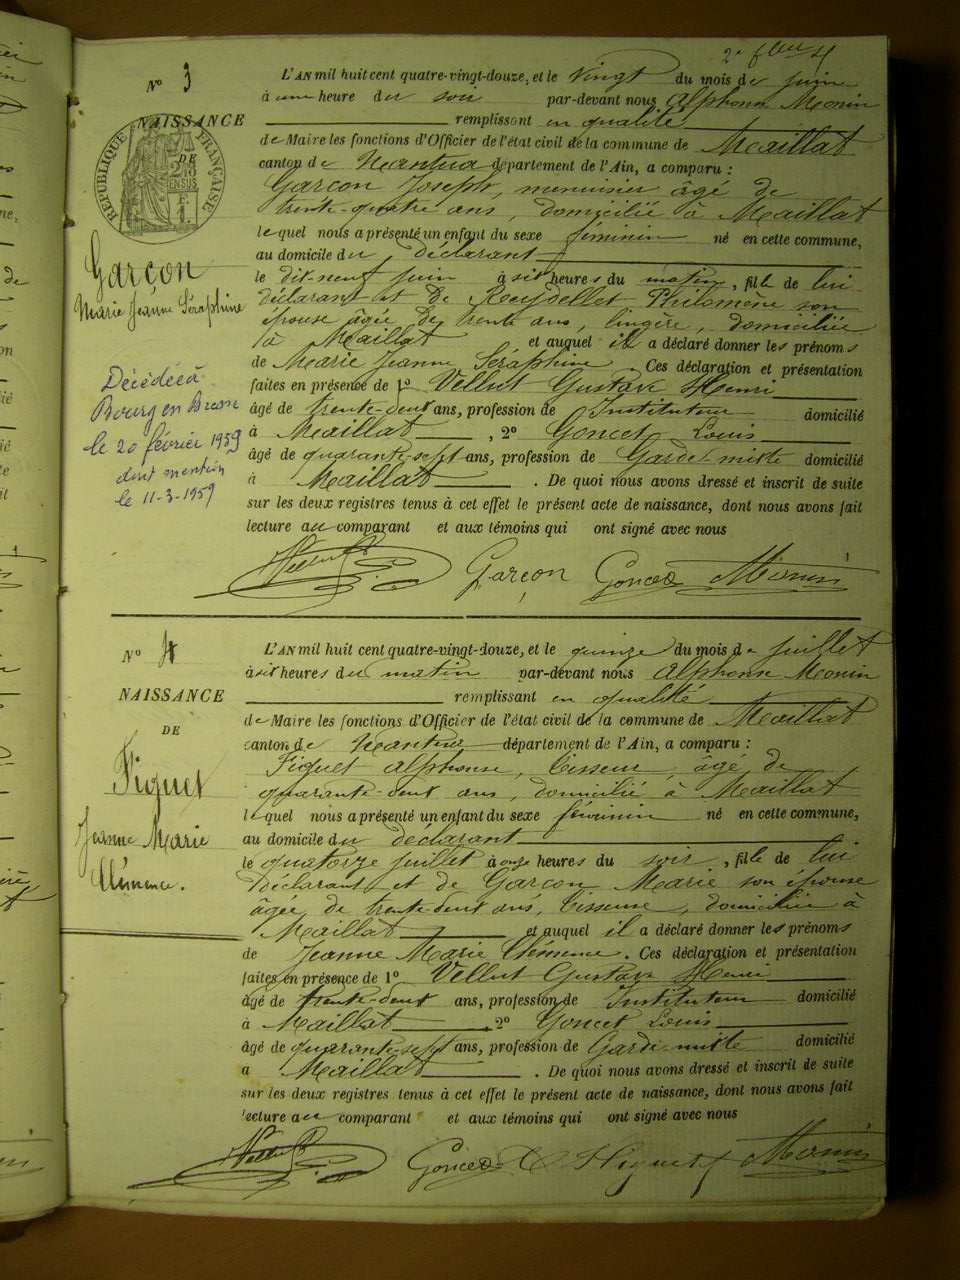 2e f
Nº 3
NAISSANCE
DE
RÉPUBLIQUE FRANÇAISE
Garçon
Marie Jeanne Séraphine
Décédée à
Bourg en Bresse
le 20 février 1959
dont mention
le 11-3-1959
L'AN mil huit cent quatre-vingt-douze, et le vingt du mois de juin
à une heure du soir par-devant nous Alphonse Monin
remplissant en qualité
de Maire les fonctions d'Officier de l'état civil de la commune de Maillat
canton de Nantua département de l'Ain, a comparu :
Garçon Joseph, menuisier âgé de
trente-quatre ans, domicilié à Maillat
lequel nous a présenté un enfant du sexe féminin né en cette commune,
au domicile du déclarant
le dix-neuf juin à six heures du matin, fille de lui
déclarant et de Reydellet Philomène son
épouse âgée de trente ans, lingère, domiciliée
à Maillat et auquel il a déclaré donner les prénoms
de Marie Jeanne Séraphine Ces déclaration et présentation
faites en présence de 1º Vellut Gustave Henri
âgé de trente-deux ans, profession de Instituteur domicilié
à Maillat, 2º Goncet Louis
âgé de quarante-sept ans, profession de Garde-mixte domicilié
à Maillat. De quoi nous avons dressé et inscrit de suite
sur les deux registres tenus à cet effet le présent acte de naissance, dont nous avons fait
lecture au comparant et aux témoins qui ont signé avec nous
Vellut G. Garçon Goncet Monin
Nº 4
NAISSANCE
DE
Figuet
Jeanne Marie
Clémence.
L'AN mil huit cent quatre-vingt-douze, et le quinze du mois de juillet
à six heures du matin par-devant nous Alphonse Monin
remplissant en qualité
de Maire les fonctions d'Officier de l'état civil de la commune de Maillat
canton de Nantua département de l'Ain, a comparu :
Figuet Alphonse, Tisseur, âgé de
quarante-deux ans, domicilié à Maillat
lequel nous a présenté un enfant du sexe féminin né en cette commune,
au domicile du déclarant
le quatorze juillet à onze heures du soir, fille de lui
déclarant et de Garçon Marie son épouse
âgée de trente-deux ans, Tisseuse, domiciliée à
Maillat et auquel il a déclaré donner les prénoms
de Jeanne Marie Clémence. Ces déclaration et présentation
faites en présence de 1º Vellut Gustave Henri
âgé de trente-deux ans, profession de Instituteur domicilié
à Maillat, 2º Goncet Louis
âgé de quarante-sept ans, profession de Garde-mixte domicilié
à Maillat. De quoi nous avons dressé et inscrit de suite
sur les deux registres tenus à cet effet le présent acte de naissance, dont nous avons fait
lecture au comparant et aux témoins qui ont signé avec nous
Vellut G. Goncet Figuet Monin